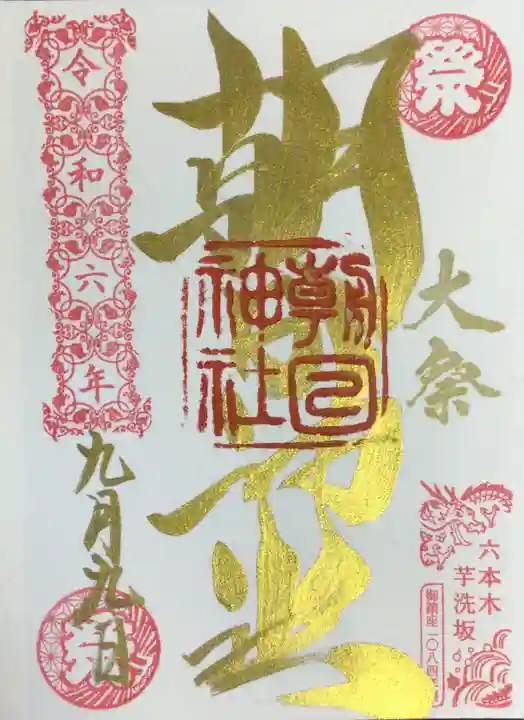 祭
大祭
六本木
芋洗坂
御鎮座一〇八四年
朝日
朝日
神社
令和六年
九月九日
祭